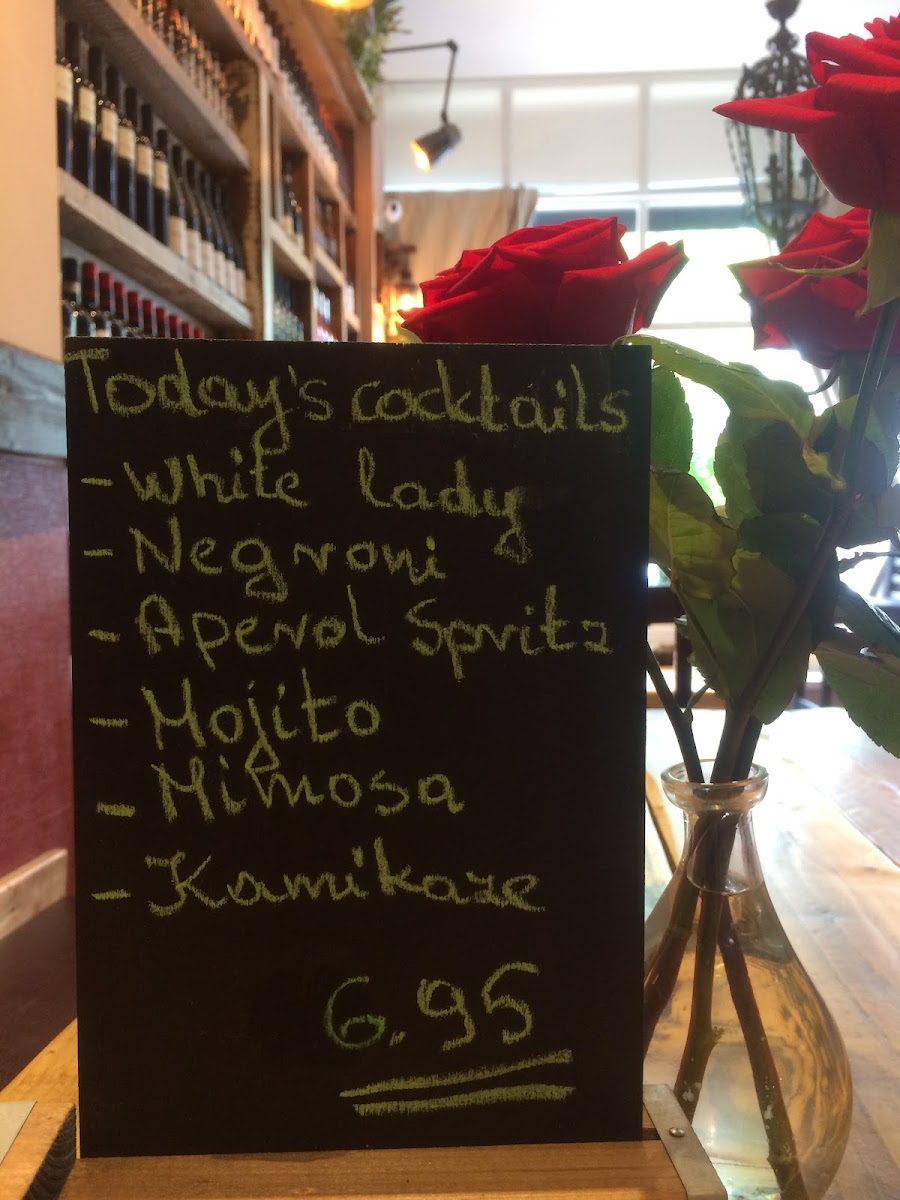 Today's cocktails
- White lady
- Negroni
- Aperol Spritz
- Mojito
- Mimosa
- Kamikaze
6.95